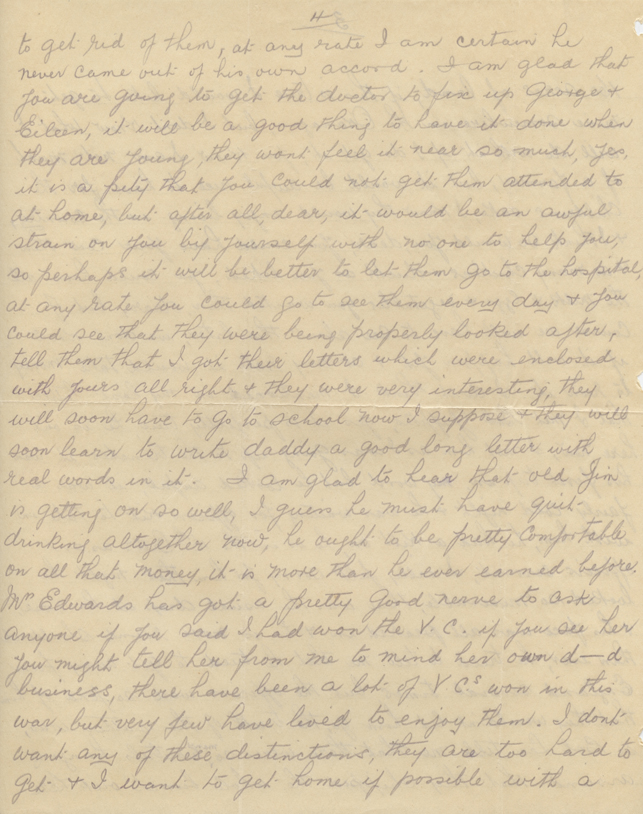 4
to get rid of them, at any rate I am certain he
never came out of his own accord. I am glad that
you are going to get the doctor to fix up George &
Eileen, it will be a good thing to have it done when
they are young, they wont feel it near so much, yes,
it is a pity that you could not get them attended to
at home, but after all, dear, it would be an awful
strain on you by yourself with no one to help you,
so perhaps it will be better to let them go to the hospital,
at any rate you could go to see them every day & you
could see that they were being properly looked after,
tell them that I got their letters which were enclosed
with yours all right & they were very interesting, they
will soon have to go to school now I suppose & they will
soon learn to write daddy a good long letter with
real words in it. I am glad to hear that old Jim
is getting on so well, I guess he must have quit
drinking altogether now, he ought to be pretty comfortable
on all that money, it is more than he ever earned before.
Mrs Edwards has got a pretty good nerve to ask
anyone if you said I had won the V.C. if you see her
you might tell her from me to mind her own d—d
business, there have been a lot of V Cs won in this
war, but very few have lived to enjoy them. I dont
want any of these distinctions, they are too hard to
get & I want to get home if possible with a